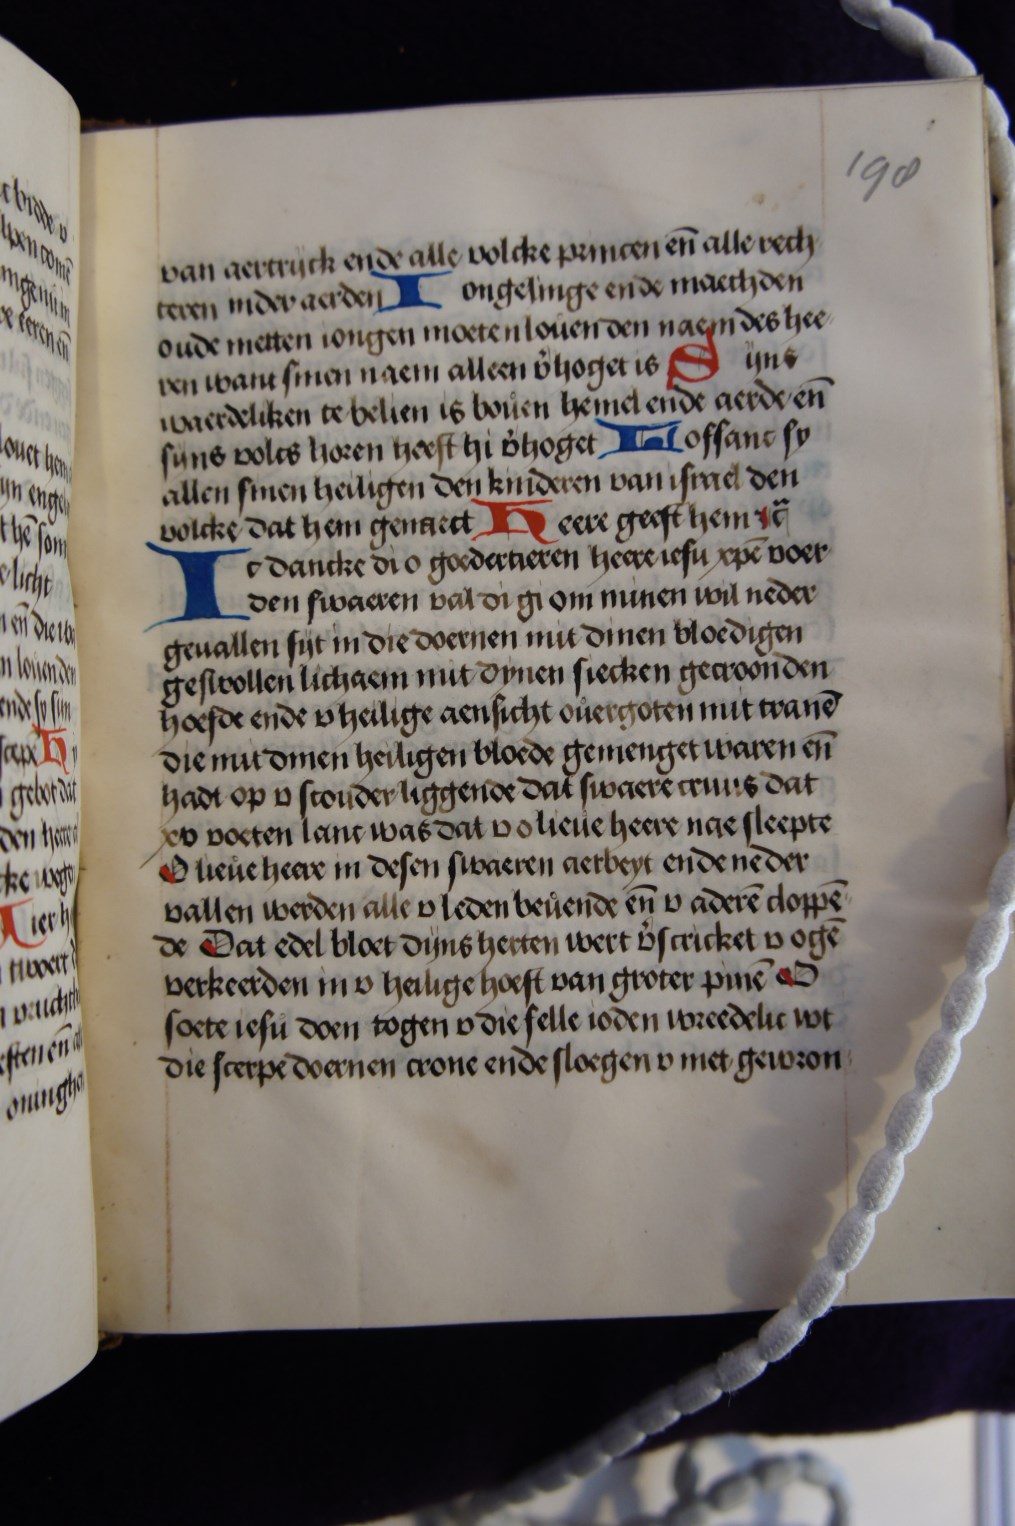 198
van aertrijck ende alle volcke princen en̄ alle rech
teren inder aerden Iongelinge ende maechden
oude metten iongen moeten louen den naem des hee
ren want sinen naem alleen v̉hoget is Sijns
waerdeliken te belien is bouen hemel ende aerde en̄
sijns volcs horen heeft hi v̉hoget Loffanc sy
allen sinen heiligen den kinderen van israel den
volcke dat hem genaect Heere geeft hem
Ic dancke di o goedertieren heere iesu xpē voer
den swaeren val di gi om minen wil neder
geuallen sijt in die doernen mit dinen bloedigen
geswollen lichaem mit dynen siecken gecroonden
hoefde ende v heilige aensicht ouergoten mit tranē
die mit dinen heiligen bloede gemenget waren en̄
hadt op v scouder liggende dat swaere cruus dat
xv voeten lanc was dat v o lieue heere nae sleepte
O lieue heere in desen swaeren aerbeyt ende neder
vallen werden alle v leden beuende en̄ v aderē cloppē
de Dat edel bloet dijns herten wert v̉scricket v ogē
verkeerden in v heilige hoeft van groter pinē O
soete iesu doen togen v die felle ioden wreedelic wt
die scerpe doernen crone ende sloegen v met gewron